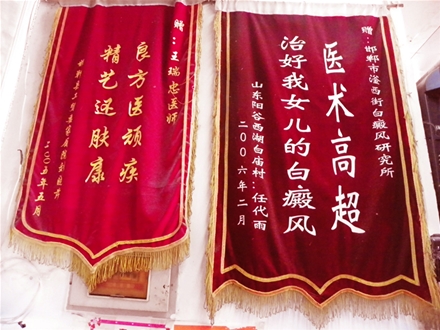 赠:邯郸市滏西街白癜风研究所
医术高超
治好我女儿的白癜风
山东阳谷西湖白庙村:任代雨
二00六年二月
赠:王瑞忠医师
良方医顽疾
精艺还肤康
二00五年五月